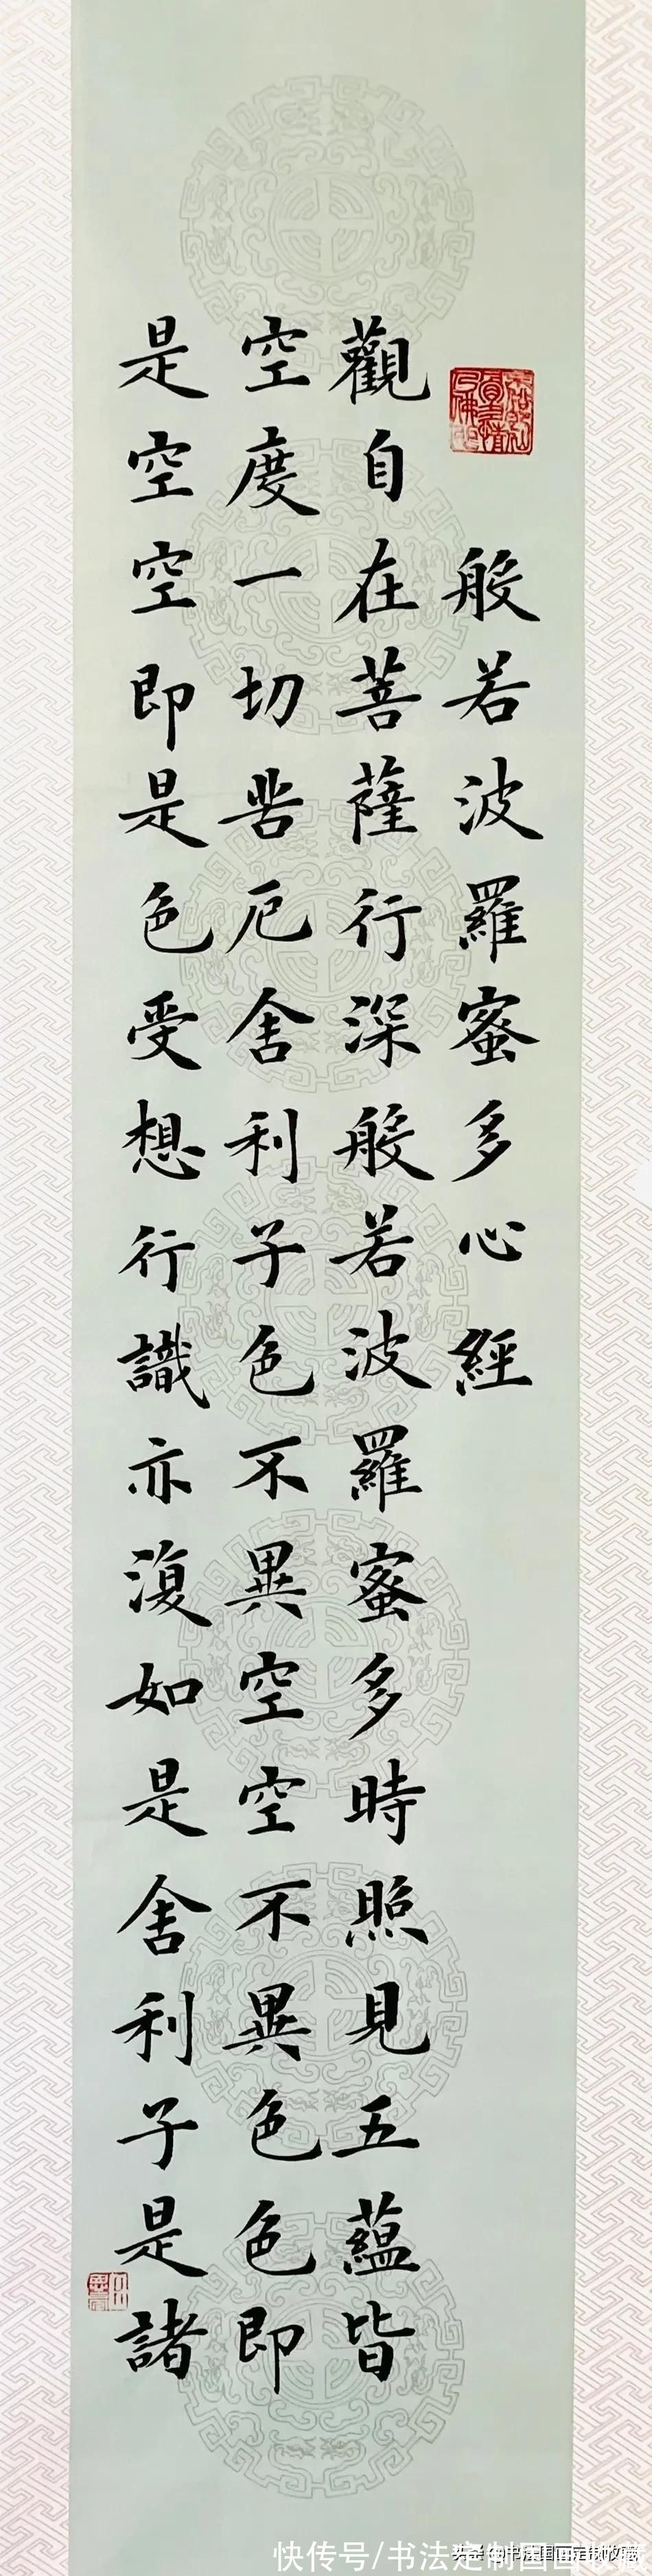 般若波羅蜜多心經
觀自在菩薩行深般若波羅蜜多時照見五蘊皆
空度一切苦厄舍利子色不異空空不異色色即
是空空即是色受想行識亦復如是舍利子是諸
快传号/书法定制国画收藏